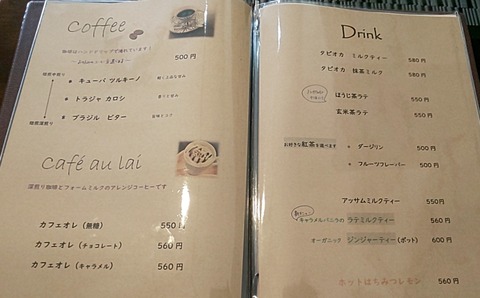 Coffee
珈琲はハンドドリップで淹れています!
500 円
キューバ ツルキーノ
トラジャ カロシ
ブラジル ビター
Café au lai
深煎り珈琲とフォームミルクのアレンジコーヒーです
カフェオレ (無糖) 550 円
カフェオレ (チョコレート) 560 円
カフェオレ (キャラメル) 560 円
Drink
タピオカ ミルクティー 580 円
タピオカ 抹茶ミルク 580 円
ほうじ茶ラテ 550 円
玄米茶ラテ 550 円
お好きな紅茶を選べます
ダージリン 500 円
フルーツフレーバー 500 円
アッサムミルクティー 550円
キャラメルバニラの ラテミルクティー 560 円
オーガニック ジンジャーティー (ポット) 600 円
ホットはちみつレモン 560 円